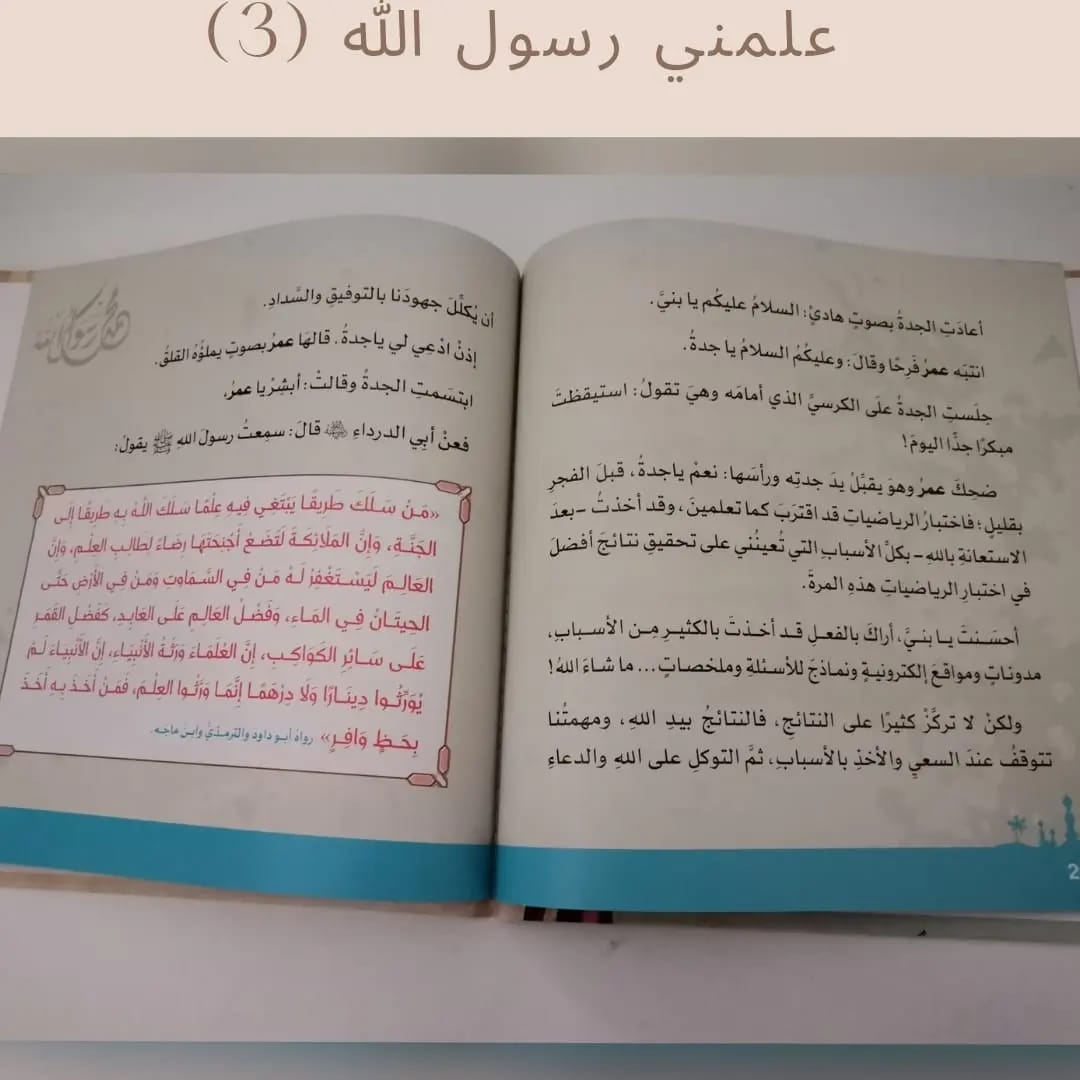 علمني رسول الله (3)
أعادَتِ الجدةُ بصوتٍ هادئٍ: السلامُ عليكُم يا بنيَّ.
انتبَه عمرُ فَرِحًا وقالَ: وعليكُمُ السلامُ يا جدةُ.
جلَستِ الجدةُ علَى الكرسيِّ الذي أمامَه وهيَ تقولُ: استيقظتَ
مبكرًا جدًّا اليومَ!
ضحِكَ عمرُ وهوَ يقبِّلُ يدَ جدتِه ورأسَها: نعمْ ياجدةُ، قبلَ الفجرِ
بقليلٍ؛ فاختبارُ الرياضياتِ قد اقتربَ كما تعلمينَ، وقد أخذتُ -بعدَ
الاستعانةِ باللهِ- بكلِّ الأسبابِ التي تُعينُني على تحقيقِ نتائجَ أفضلَ
في اختبارِ الرياضياتِ هذهِ المرةَ.
أحسَنتَ يا بنيَّ، أراكَ بالفعلِ قد أخذتَ بالكثيرِ مِن الأسبابِ،
مدوناتٍ ومواقعَ إلكترونيةٍ ونماذجَ للأسئلةِ وملخصاتٍ... ما شاءَ اللهُ!
ولكنْ لا تركِّزْ كثيرًا على النتائجِ، فالنتائجُ بيدِ اللهِ، ومهمتُنا
تتوقفُ عندَ السعيِ والأخذِ بالأسبابِ، ثمَّ التوكلِ على اللهِ والدعاءِ
2
محمد رسول الله
أن يُكلِّلَ جهودَنا بالتوفيقِ والسَّدادِ.
إذنْ ادْعِي لي ياجدةُ. قالهَا عمرُ بصوتٍ يملؤُهُ القلقُ.
ابتَسَمتِ الجدةُ وقالتْ: أبشِرْ يا عمرُ،
فعنْ أبِي الدرداءِ ﵁ قالَ: سمِعتُ رسولَ اللهِ ﷺ يقولُ:
«مَنْ سَلَكَ طَرِيقًا يَبْتَغِي فِيهِ عِلْمًا سَلَكَ اللَّهُ بِهِ طَرِيقًا إِلَى
الجَنَّةِ، وَإِنَّ المَلَائِكَةَ لَتَضَعُ أَجْنِحَتَهَا رِضَاءً لِطَالِبِ العِلْمِ، وَإِنَّ
العَالِمَ لَيَسْتَغْفِرُ لَهُ مَنْ فِي السَّمَاوَتِ وَمَنْ فِي الأَرْضِ حَتَّى
الحِيتَانُ فِي المَاءِ، وَفَضْلُ العَالِمِ عَلَى العَابِدِ، كَفَضْلِ القَمَرِ
عَلَى سَائِرِ الكَوَاكِبِ، إِنَّ العُلَمَاءَ وَرَثَةُ الأَنْبِيَاءِ، إِنَّ الأَنْبِيَاءَ لَمْ
يُوَرِّثُوا دِينَارًا وَلَا دِرْهَمًا إِنَّمَا وَرَّثُوا العِلْمَ، فَمَنْ أَخَذَ بِهِ أَخَذَ
بِحَظٍّ وَافِرٍ» رواهُ أبو داود والترمذيُّ وابن ماجه.